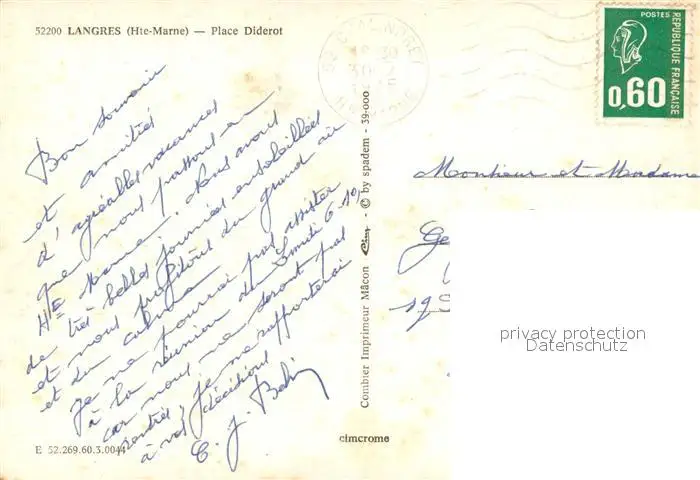 52200 LANGRES (Hte-Marne) — Place Diderot
Bon souvenir
et amitiés
d'agréables vacances
que nous passons en
Hte Marne. Nous avons
de très belles journées ensoleillées
et nous profitons du grand air
et du calme.
Je ne pourrai pas assister
à la réunion du lundi 6-10,
car nous ne serons pas
rentrés, je me rapporterai
à vos décisions
E. J.
E 52.269.60.3.0044
Combier Imprimeur Mâcon Cim - © by spadem - 39-000
cimcrome
POSTES
RÉPUBLIQUE FRANÇAISE
0,60
Monsieur et Madame
Ge
19
privacy protection
Datenschutz